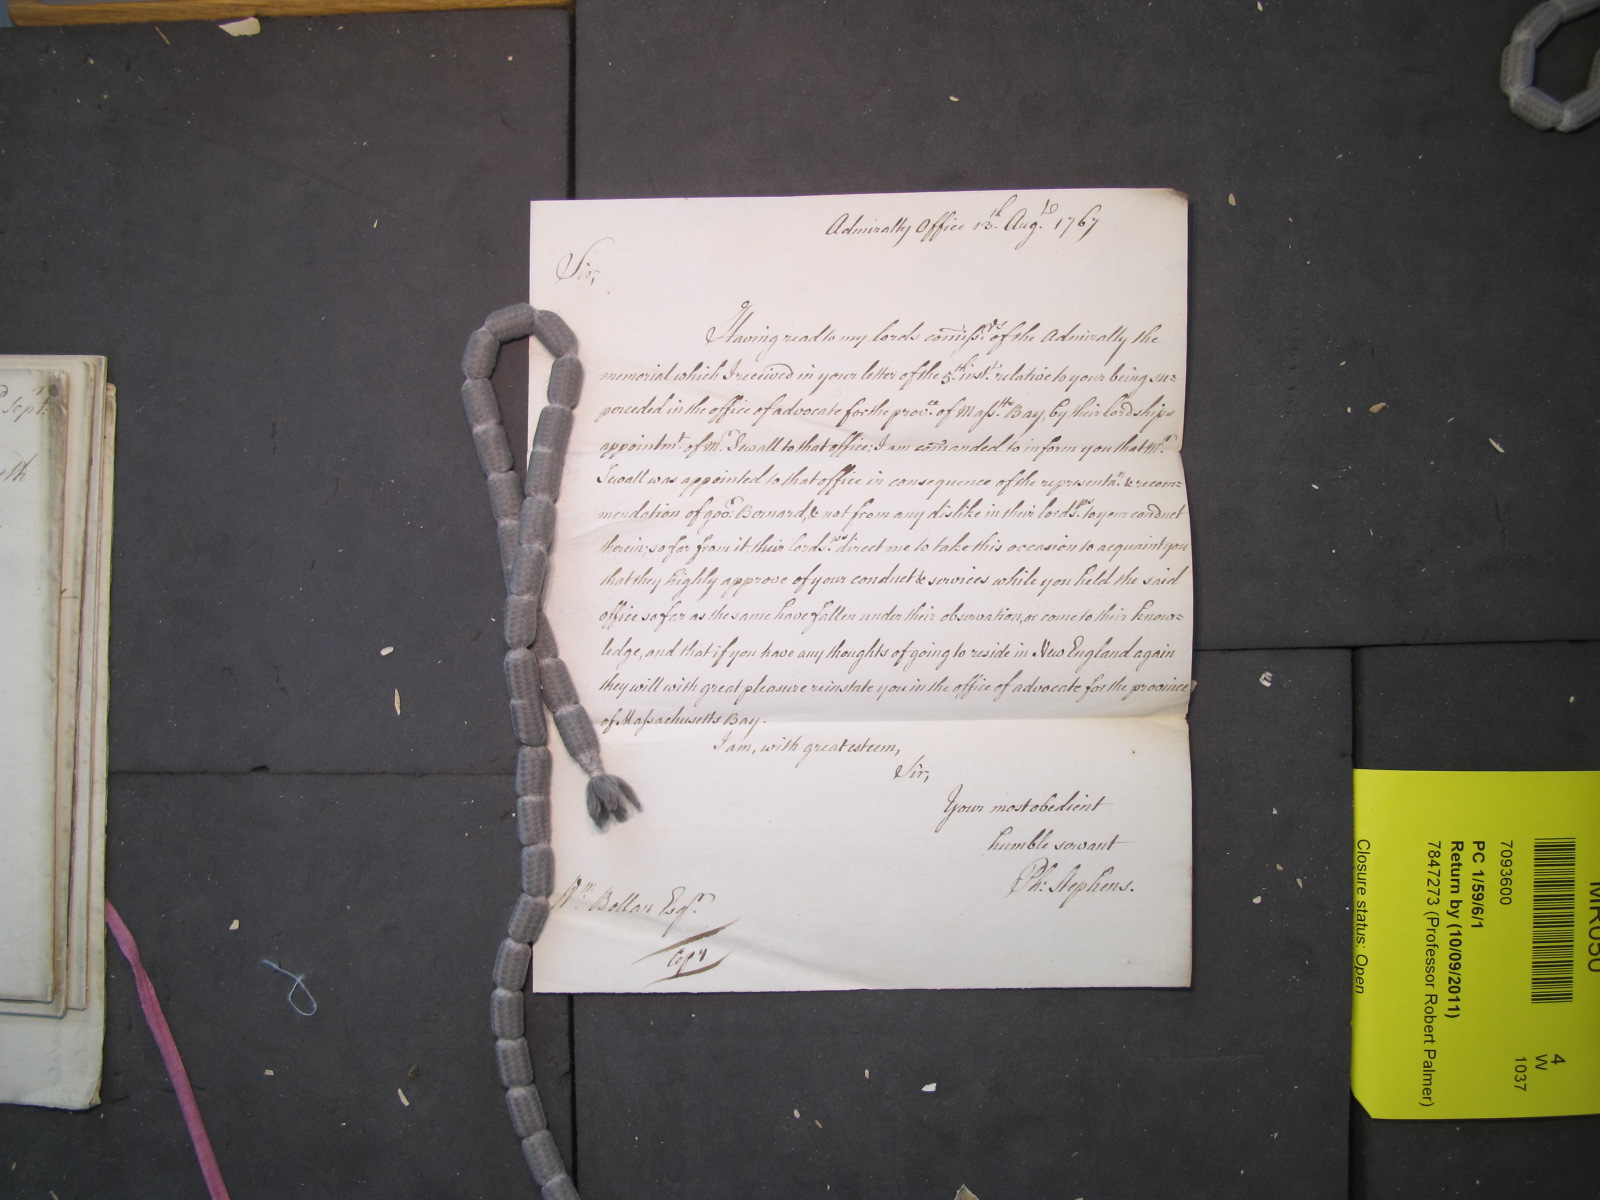 Admiralty Office 13.th Aug.to 1767
Sir,
Having read to my lords comiss.rs of the Admiralty the
memorial which I received in your letter of the 5.th inst.t relative to your being su=
perceded in the office of advocate for the prov.ce of Mass.tts Bay, by their lordships
appointm.t of M.r Sewall to that office; I am comanded to inform you that M.r
Sewall was appointed to that office in consequence of the representa.n & recom=
mendation of gov.r Bernard, & not from any dislike in their lords.ps to your conduct
therein; so far from it their lords.ps direct me to take this occasion to acquaint you
that they highly approve of your conduct & services while you held the said
office so far as the same have fallen under their observation, or come to their know=
ledge, and that if you have any thoughts of going to reside in New England again
they will with great pleasure reinstate you in the office of advocate for the province
of Massachusetts Bay.
I am, with great esteem,
Sir,
Your most obedient
humble servant
Ph: Stephens.
W.m Bollan Esq.r
Copy
Sept.
MR050
4
W
1037
7093600
PC 1/59/6/1
Return by (10/09/2011)
7847273 (Professor Robert Palmer)
Closure status: Open